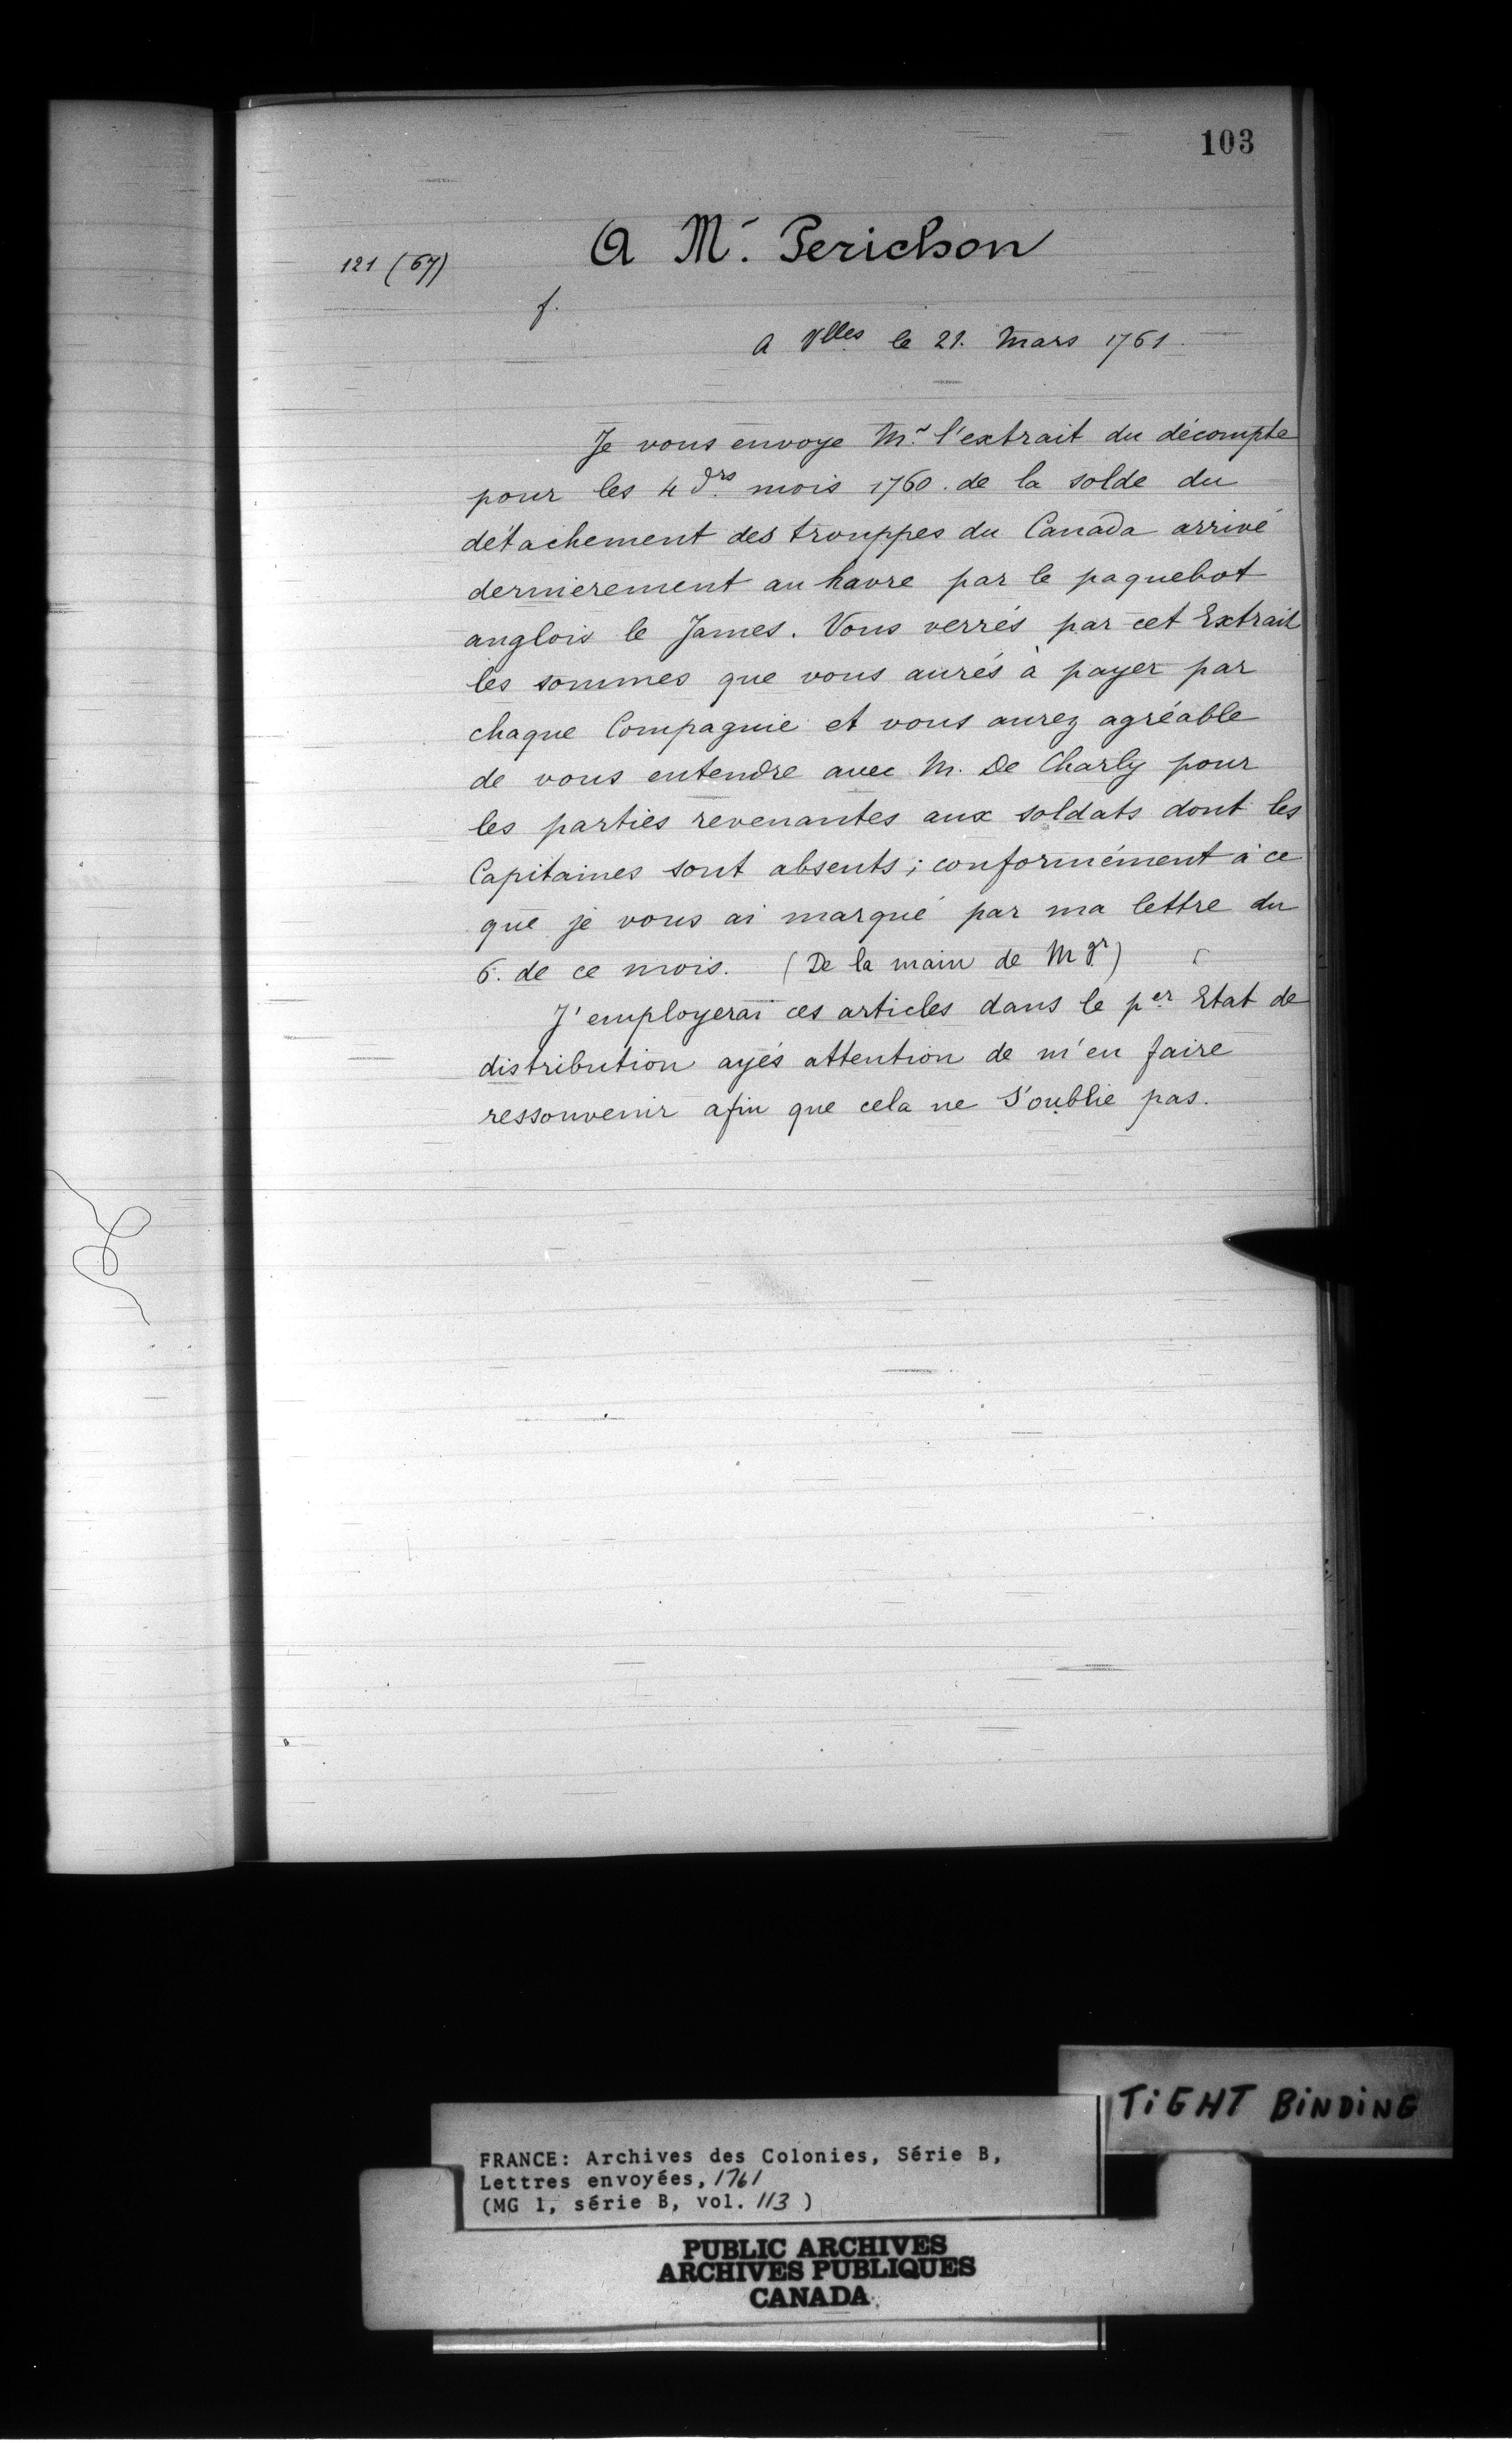 103
A Mr. Perichon
121 (67)
f.
a Vlles le 21. Mars 1761.
Je vous envoye Mr. l'extrait du décompte
pour les 4 drs. mois 1760. de la solde du
détachement des trouppes du Canada arrivé
dernierement au havre par le paquebot
anglois le James. Vous verrés par cet Extrait
les sommes que vous aurés à payer par
chaque Compagnie et vous aurez agréable
de vous entendre avec M. De Charly pour
les parties revenantes aux soldats dont les
Capitaines sont absents; conformément à ce
que je vous ai marqué par ma lettre du
6. de ce mois. (De la main de Mgr.)
J'employerai ces articles dans le per. Etat de
distribution ayés attention de m'en faire
ressouvenir afin que cela ne s'oublie pas.
TiGHT BiNDiNG
FRANCE: Archives des Colonies, Série B,
Lettres envoyées, 1761
(MG 1, série B, vol. 113 )
PUBLIC ARCHIVES
ARCHIVES PUBLIQUES
CANADA